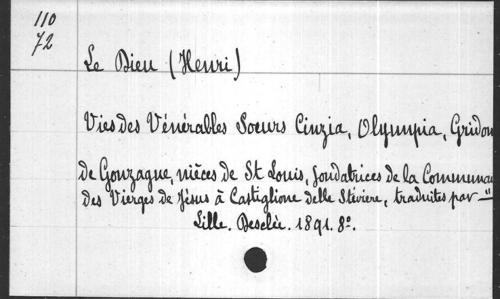 110
72
Le Dieu (Henri)
Vies des Vénérables Soeurs Cinzia, Olympia, Gridon
de Gonzague, nièces de St Louis, fondatrices de la Communau
des Vierges de Jésus à Castiglione delle Stiviere, traduites par "
Lille. Desclée. 1891. 8º.